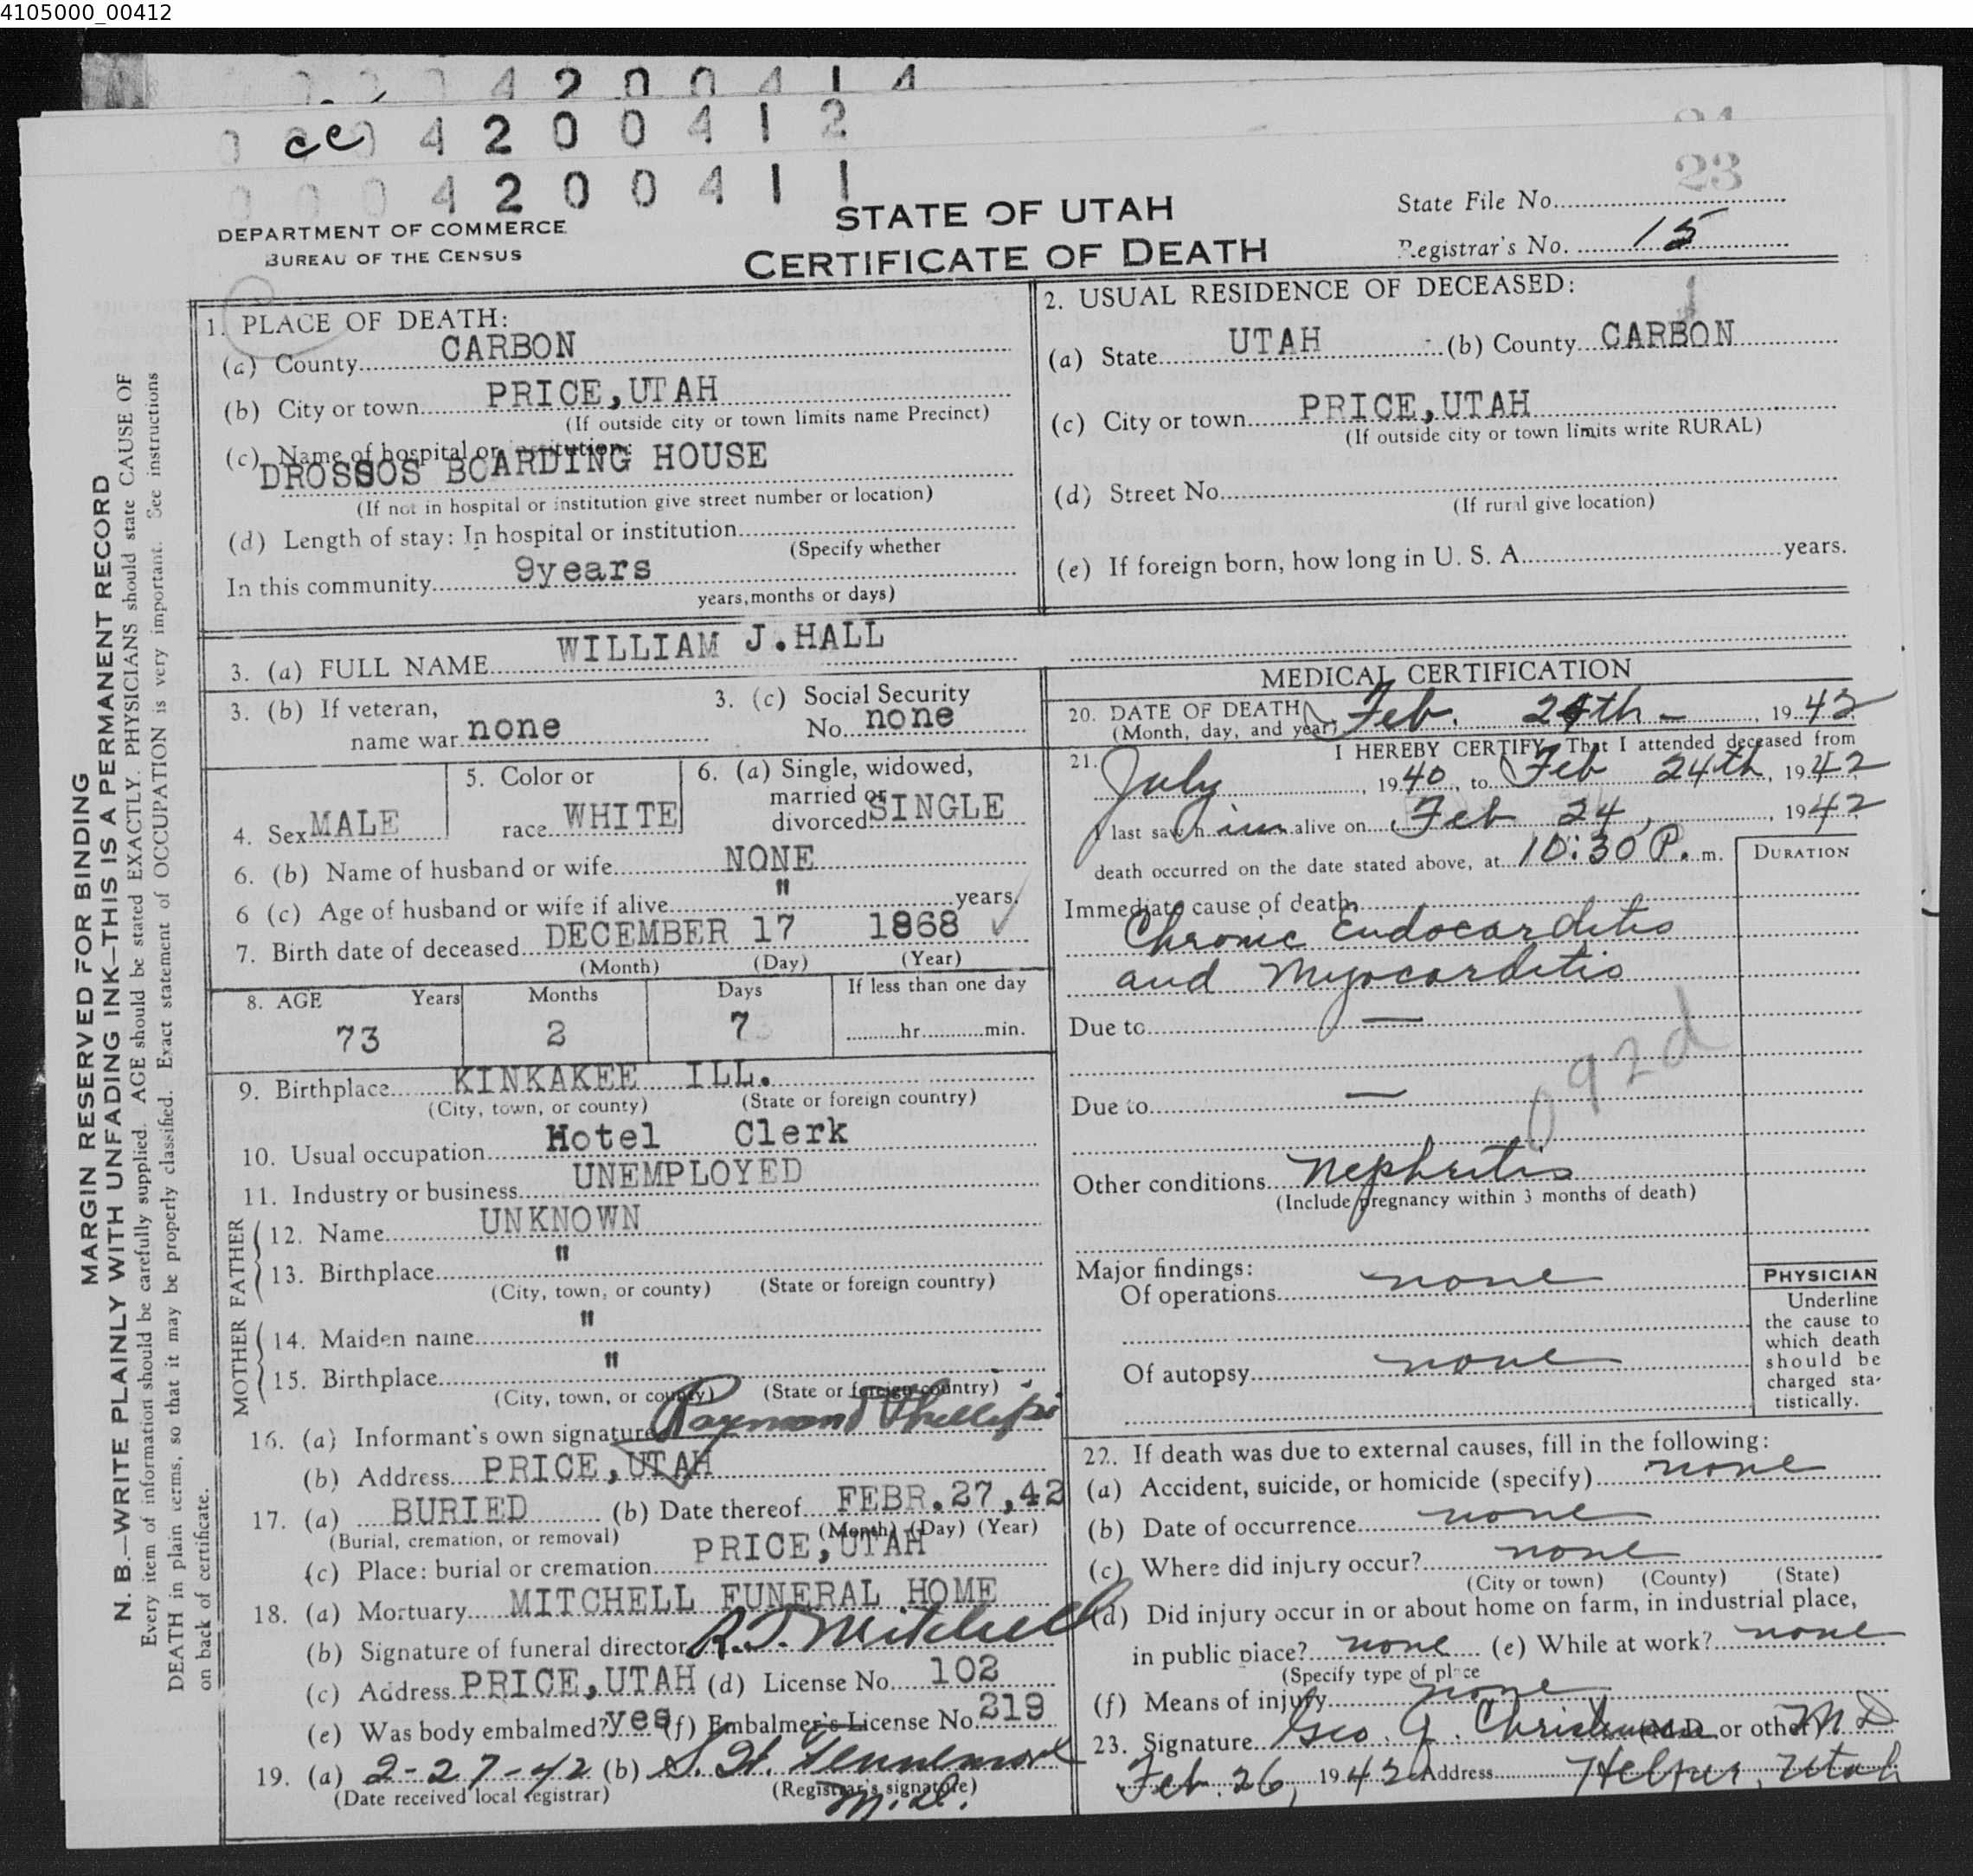 4105000_00412
4 2 0 0 4 1 4
ce 4 2 0 0 4 1 2
0 0 0 4 2 0 0 4 1 1
23
DEPARTMENT OF COMMERCE
BUREAU OF THE CENSUS
STATE OF UTAH
CERTIFICATE OF DEATH
State File No.
Registrar's No. 15
1. PLACE OF DEATH:
(a) County CARBON
(b) City or town PRICE,UTAH
(If outside city or town limits name Precinct)
(c) Name of hospital or institution:
DROSSOS BOARDING HOUSE
(If not in hospital or institution give street number or location)
(d) Length of stay: In hospital or institution
(Specify whether
In this community 9years
years, months or days)
2. USUAL RESIDENCE OF DECEASED:
(a) State UTAH (b) County CARBON
(c) City or town PRICE,UTAH
(If outside city or town limits write RURAL)
(d) Street No.
(If rural give location)
(e) If foreign born, how long in U. S. A. years.
3. (a) FULL NAME WILLIAM J.HALL
3. (b) If veteran,
name war none
3. (c) Social Security
No. none
4. Sex MALE
5. Color or
race WHITE
6. (a) Single, widowed,
married or
divorced SINGLE
6. (b) Name of husband or wife NONE
6 (c) Age of husband or wife if alive " years.
7. Birth date of deceased DECEMBER 17 1868
(Month) (Day) (Year)
8. AGE Years Months Days If less than one day
73 2 7 hr. min.
9. Birthplace KINKAKEE ILL.
(City, town, or county) (State or foreign country)
10. Usual occupation Hotel Clerk
11. Industry or business UNEMPLOYED
FATHER
12. Name UNKNOWN
13. Birthplace "
(City, town, or county) (State or foreign country)
MOTHER
14. Maiden name "
15. Birthplace "
(City, town, or county) (State or foreign country)
16. (a) Informant's own signature Raymond Phillips
(b) Address PRICE,UTAH
17. (a) BURIED (b) Date thereof FEBR.27,42
(Burial, cremation, or removal) (Month) (Day) (Year)
(c) Place: burial or cremation PRICE,UTAH
18. (a) Mortuary MITCHELL FUNERAL HOME
(b) Signature of funeral director Mitchell
(c) Address PRICE,UTAH (d) License No. 102
(e) Was body embalmed? yes (f) Embalmer's License No. 219
19. (a) 2-27-42 (b) Fennemore
(Date received local registrar) (Registrar's signature)
M.D.
MEDICAL CERTIFICATION
20. DATE OF DEATH Feb. 24th - , 1942
(Month, day, and year)
21. I HEREBY CERTIFY, That I attended deceased from
July , 1940, to Feb 24th, 1942
I last saw him alive on Feb 24, , 1942
death occurred on the date stated above, at 10:30 P. m.
DURATION
Immediate cause of death
Chronic Endocarditis
and Myocarditis
Due to —
Due to —
092d
Other conditions Nephritis
(Include pregnancy within 3 months of death)
Major findings:
Of operations none
Of autopsy none
PHYSICIAN
Underline
the cause to
which death
should be
charged sta-
tistically.
22. If death was due to external causes, fill in the following:
(a) Accident, suicide, or homicide (specify) none
(b) Date of occurrence none
(c) Where did injury occur? none
(City or town) (County) (State)
(d) Did injury occur in or about home on farm, in industrial place,
in public place? none (e) While at work? none
(Specify type of place
(f) Means of injury none
23. Signature Geo. (M.D. or other) M D
Feb. 26, 1942 Address Helper, Utah
MARGIN RESERVED FOR BINDING
N. B.—WRITE PLAINLY WITH UNFADING INK—THIS IS A PERMANENT RECORD
Every item of information should be carefully supplied. AGE should be stated EXACTLY. PHYSICIANS should state CAUSE OF
DEATH in plain terms, so that it may be properly classified. Exact statement of OCCUPATION is very important. See instructions
on back of certificate.